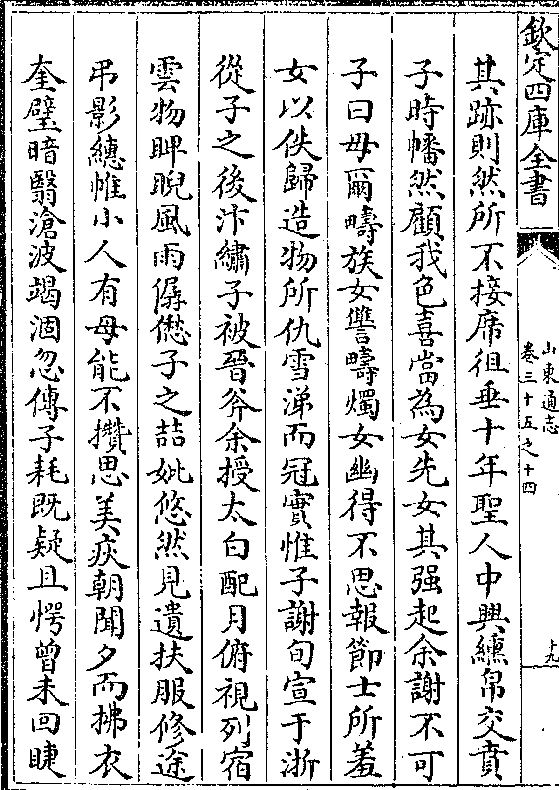 欽定四庫全書
山東通志
卷三十五之十四
十九
其跡則然所不接席徂垂十年聖人中興纁帛交賁
子時幡然顧我色喜當為女先女其强起余謝不可
子曰毋爾疇族女讐疇燭女幽得不思報節士所羞
女以佚歸造物所仇雪涕而冠實惟子謝旬宣于浙
從子之後汴繡子被晉斧余授太白配月俯視列宿
雲物睥睨風雨僝僽子之喆妣悠然見遺扶服修途
弔影繐帷小人有母能不攢思美疢朝聞夕而拂衣
奎璧暗翳滄波竭涸忽傳子耗既疑且愕曾未回睫